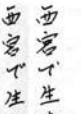 西宮で生
西宮で生